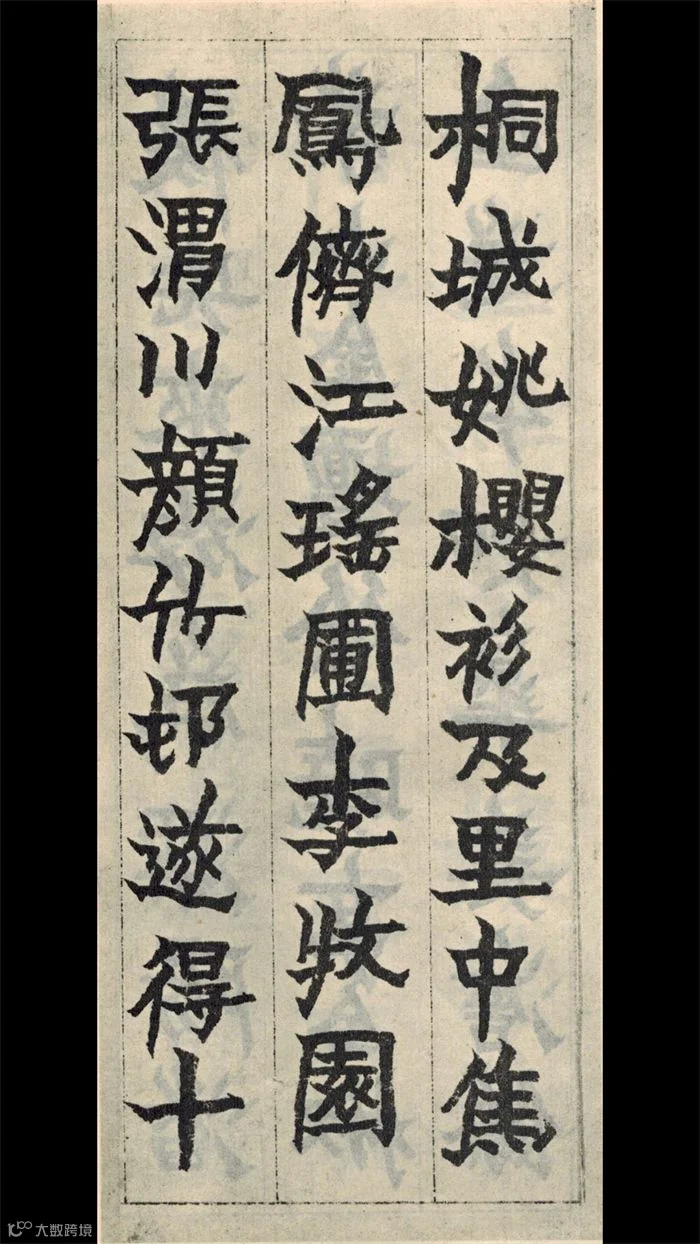 桐城姚櫻衫及里中焦
鳳儕江瑤圃李牧園
張渭川顔竹邨遂得十
大数跨境